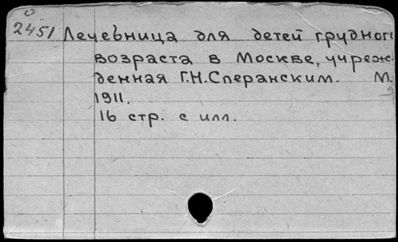 2451 Лечебница для детей грудного
возраста в Москве, учреж-
денная Г.Н.Сперанским. М.
1911.
16 стр. с илл.